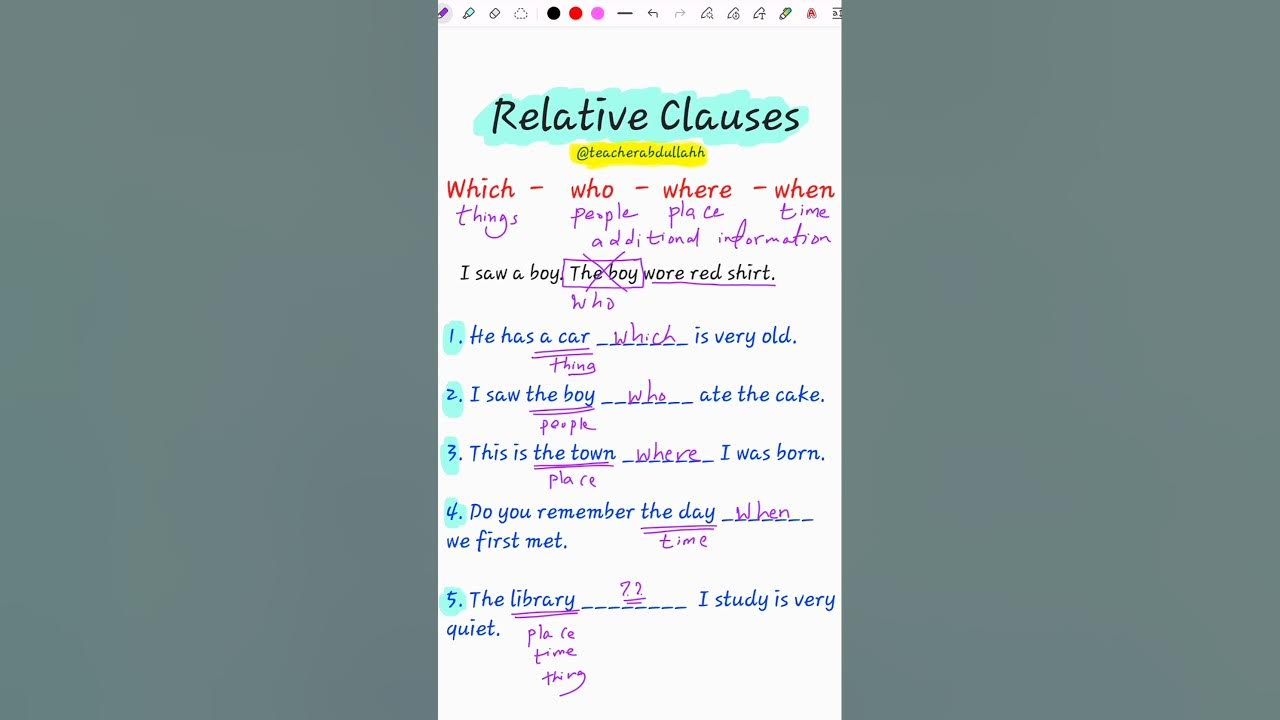 Relative Clauses
@teacherabdullahh
Which - who - where - when
things people place time
additional information
I saw a boy. The boy wore red shirt.
who
1. He has a car __which__ is very old.
thing
2. I saw the boy __who__ ate the cake.
people
3. This is the town __where__ I was born.
place
4. Do you remember the day __when__
we first met.
time
??
5. The library ________ I study is very
quiet.
place
time
thing